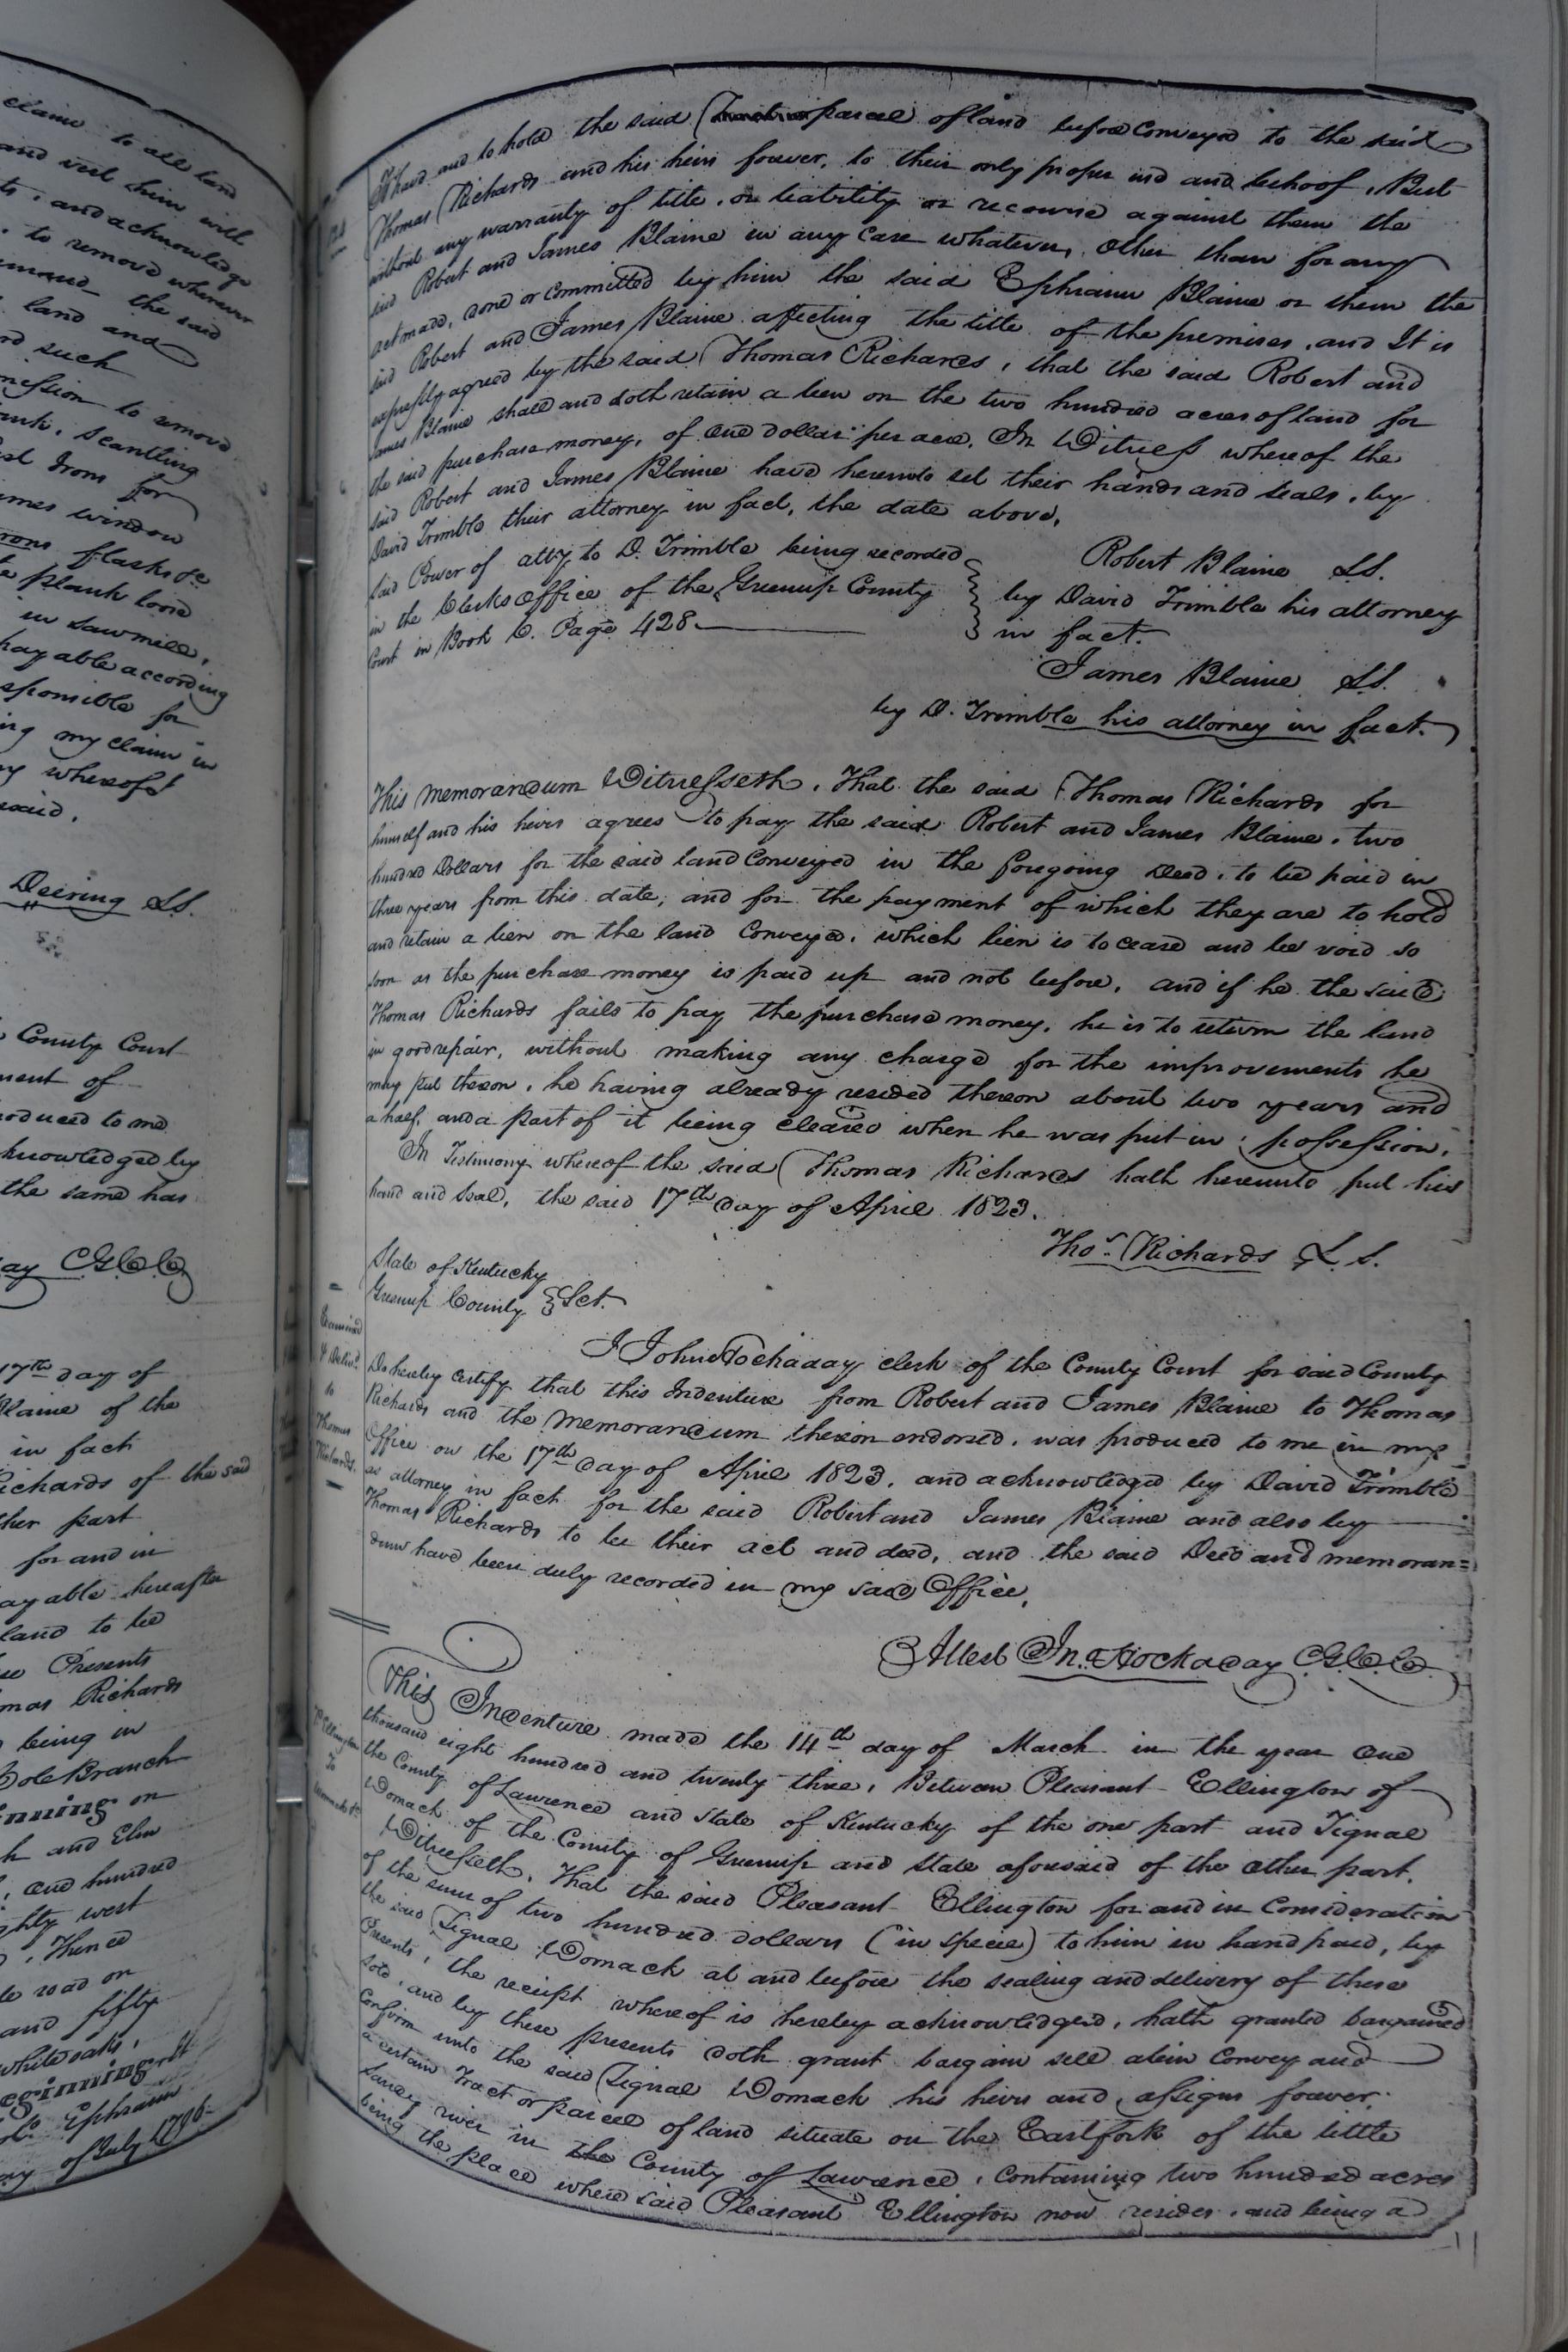 claim to all land
and will him will
and acknowledge
to remove wherever
the said
land and
such
mession to remove
scantling
Irons for
window
flasks &c
plank loose
in sawmill,
payable according
sponsible for
ing my claim in
whereof I
said.
Deering LS.
County Court
ment of
roduced to me
knowledged by
the same has
ay C.G.C.C.
17th day of
Blaine of the
in fact
Richards of the said
ther part
for and in
ayable hereafter
land to be
Presents
mas Richards
being in
Branch
inning on
h and Elm
one hundred
ghty west
Thence
road on
and fifty
white oaks,
eginning. It
Ephraim
of July 1786.
To have and to hold the said Tract or parcel of land before conveyed to the said
Thomas Richards and his heirs forever, to their only proper use and behoof, But
without any warranty of title, or liability or recourse against them the
said Robert and James Blaine in any case whatever, other than for any
act made, done or committed by him the said Ephraim Blaine or them the
said Robert and James Blaine affecting the title of the premises, and It is
expressly agreed by the said Thomas Richards, that the said Robert and
James Blaine shall and doth retain a lien on the two hundred acres of land for
the said purchase money, of one dollar per acre. In Witness whereof the
said Robert and James Blaine have hereunto set their hands and seals, by
David Trimble their attorney in fact, the date above.
said Power of atty to D. Trimble being recorded
in the Clerks office of the Greenup County
Court in Book C. Page 428.
Robert Blaine LS.
by David Trimble his attorney
in fact.
James Blaine LS.
by D. Trimble his attorney in fact.
This memorandum Witnesseth, That the said Thomas Richards for
himself and his heirs agrees to pay the said Robert and James Blaine, two
hundred Dollars for the said land conveyed in the foregoing Deed, to be paid in
three years from this date, and for the payment of which they are to hold
and retain a lien on the land conveyed, which lien is to cease and be void so
soon as the purchase money is paid up and not before, and if he the said
Thomas Richards fails to pay the purchase money, he is to return the land
in good repair, without making any charge for the improvements he
may put thereon, he having already resided thereon about two years and
a half, and a part of it being cleared when he was put in possession.
In Testimony whereof the said Thomas Richards hath hereunto put his
hand and seal, the said 17th day of April 1823.
Thos. Richards L.S.
State of Kentucky
Greenup County } Sct.
Examined
& Deliv'd
to
Thomas
Richards.
I John Hockaday clerk of the County Court for said County
Do hereby certify that this Indenture from Robert and James Blaine to Thomas
Richards and the memorandum thereon endorsed, was produced to me in my
Office on the 17th day of April 1823, and acknowledged by David Trimble
as attorney in fact for the said Robert and James Blaine and also by
Thomas Richards to be their act and deed, and the said Deed and memoran=
dum have been duly recorded in my said Office.
Attest Jn. Hockaday C.G.C.C.
Ellington
To
Womack
This Indenture made the 14th day of March in the year one
thousand eight hundred and twenty three, Between Pleasant Ellington of
the County of Lawrence and State of Kentucky of the one part and Tignal
Womack of the County of Greenup and State aforesaid of the other part.
Witnesseth, That the said Pleasant Ellington for and in Consideration
of the sum of two hundred dollars (in specie) to him in hand paid, by
the said Tignal Womack at and before the sealing and delivery of these
Presents, the receipt whereof is hereby acknowledged, hath granted bargained
sold, and by these presents doth grant bargain sell alien convey and
confirm unto the said Tignal Womack his heirs and assigns forever.
a certain Tract or parcel of land situate on the East fork of the little
Sandy river in the County of Lawrence, containing two hundred acres
being the place where said Pleasant Ellington now resides, and being a